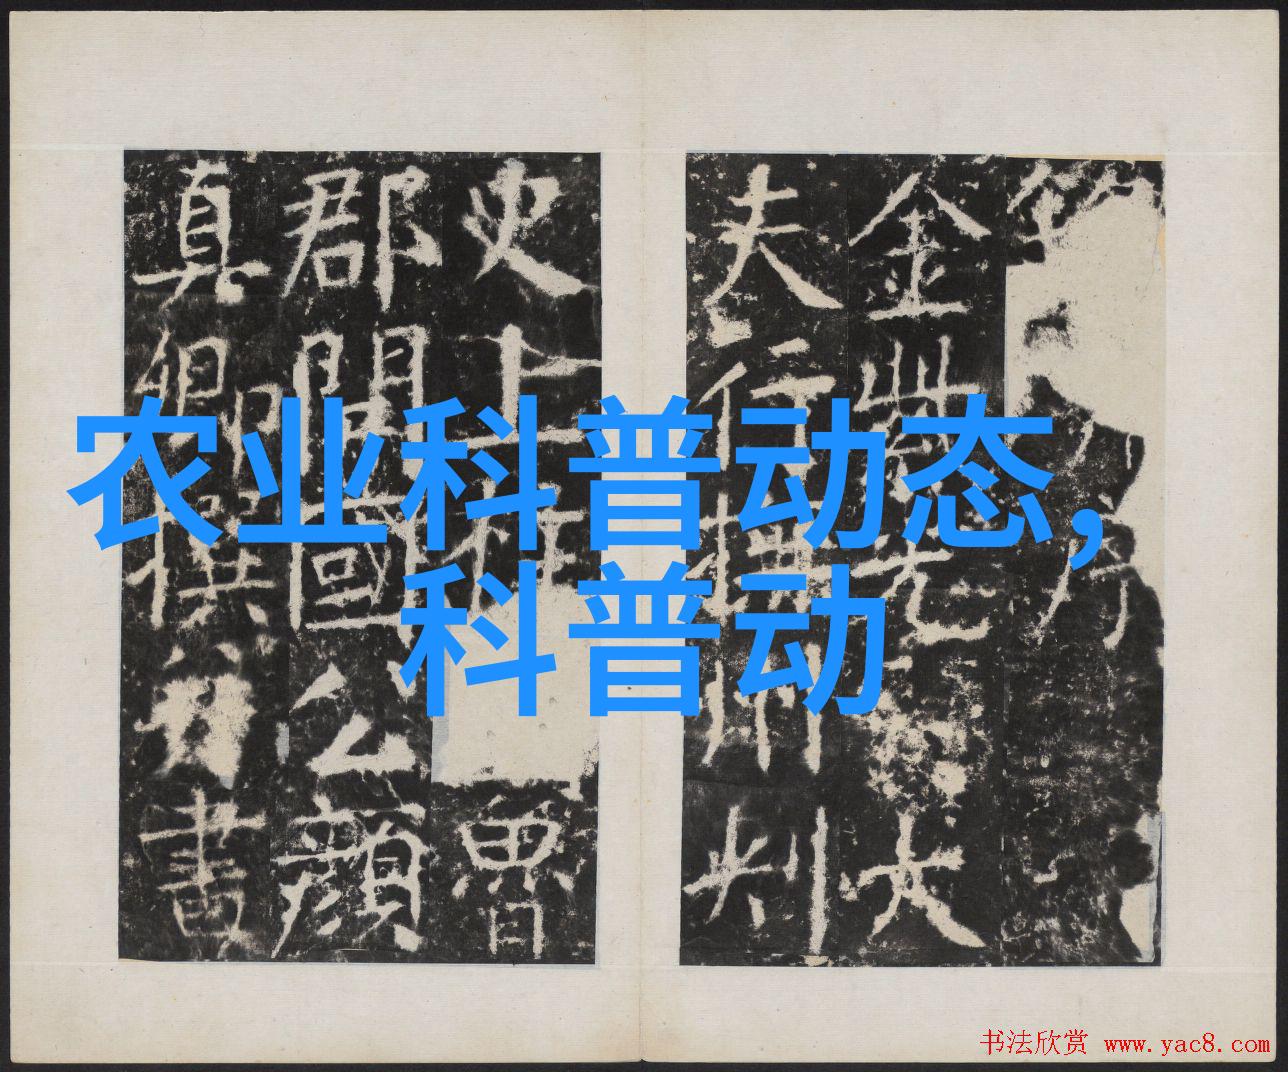 农业科普动态,
科普动
金紫光大
夫行撫州刺
史上柱魯
郡開國公顏
真卿撰書
书法欣赏 www.yac8.com